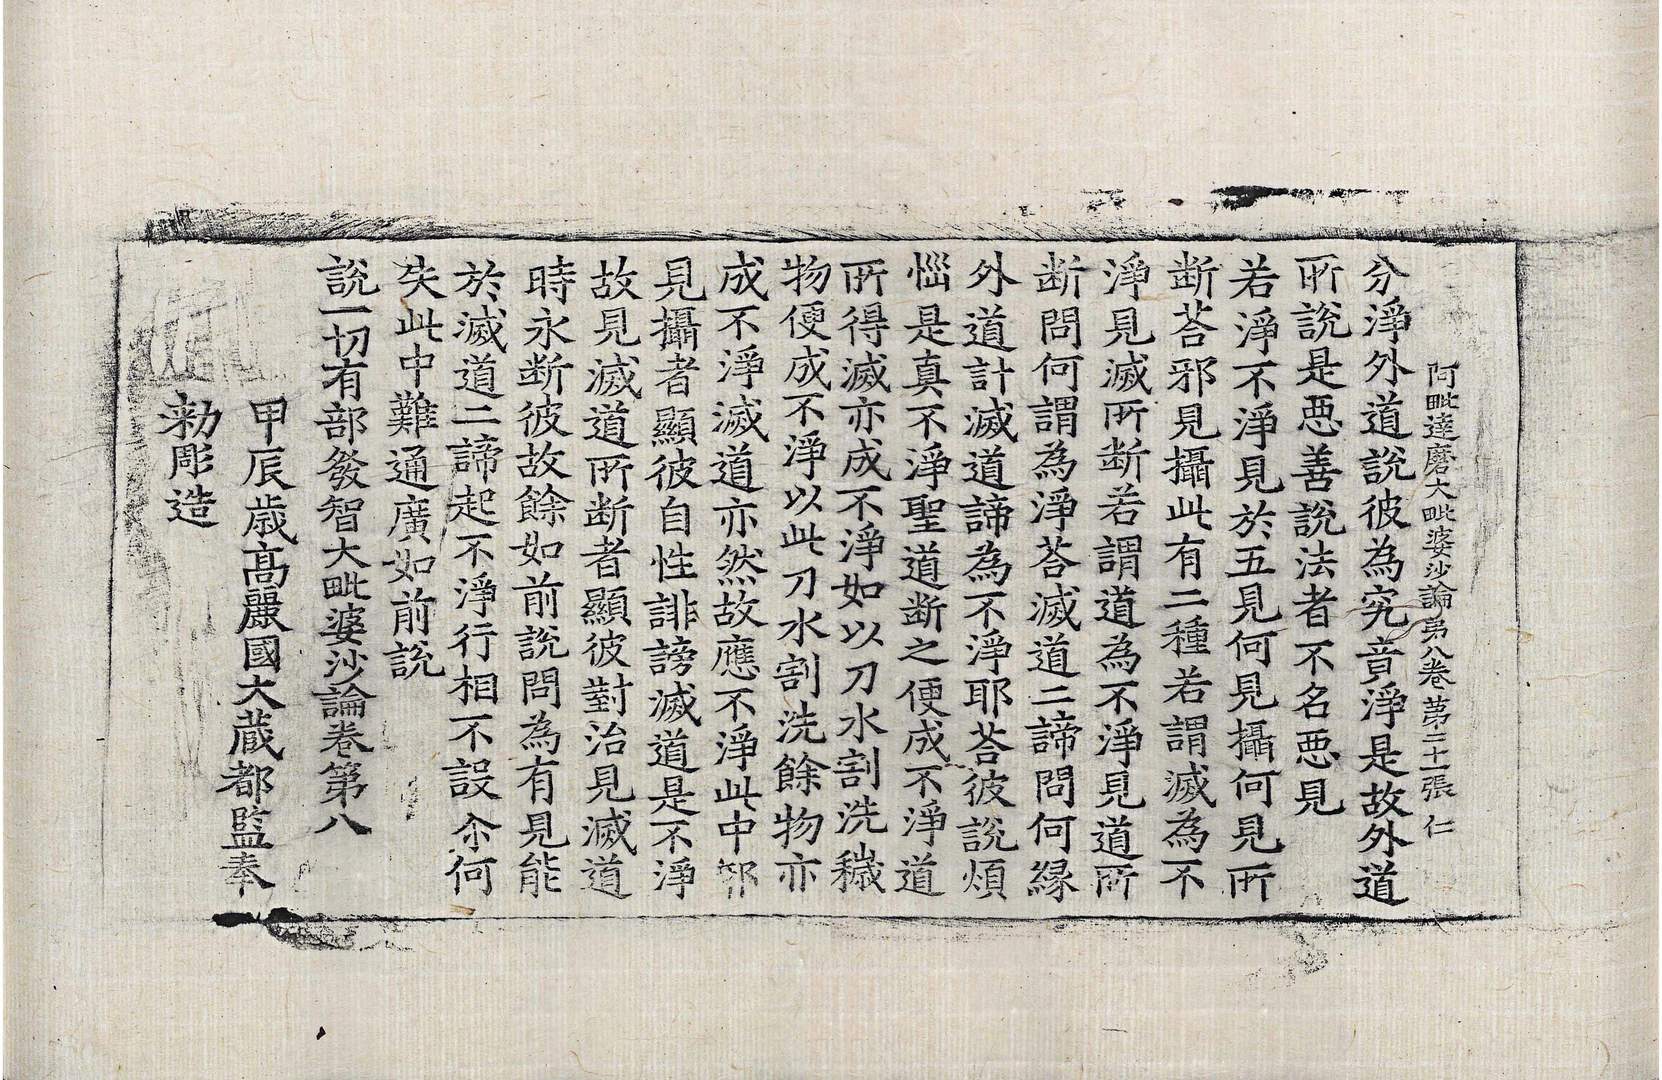 阿毗達磨大毗婆沙論第八卷 第二十一張 仁
分淨外道說彼為究竟淨是故外道
所說是惡善說法者不名惡見
若淨不淨見於五見何見攝何見所
断荅邪見攝此有二種若謂滅為不
淨見滅所断若謂道為不淨見道所
断問何謂為淨荅滅道二諦問何緣
外道計滅道諦為不淨耶荅彼說煩
惱是真不淨聖道断之便成不淨道
所得滅亦成不淨如以刀水割洗穢
物便成不淨以此刀水割洗餘物亦
成不淨滅道亦然故應不淨此中邪
見攝者顯彼自性誹謗滅道是不淨
故見滅道所断者顯彼對治見滅道
時永断彼故餘如前說問為有見能
於滅道二諦起不淨行相不設尒何
失此中難通廣如前說
說一切有部發智大毗婆沙論卷第八
甲辰歲高麗國大藏都監奉
勑彫造